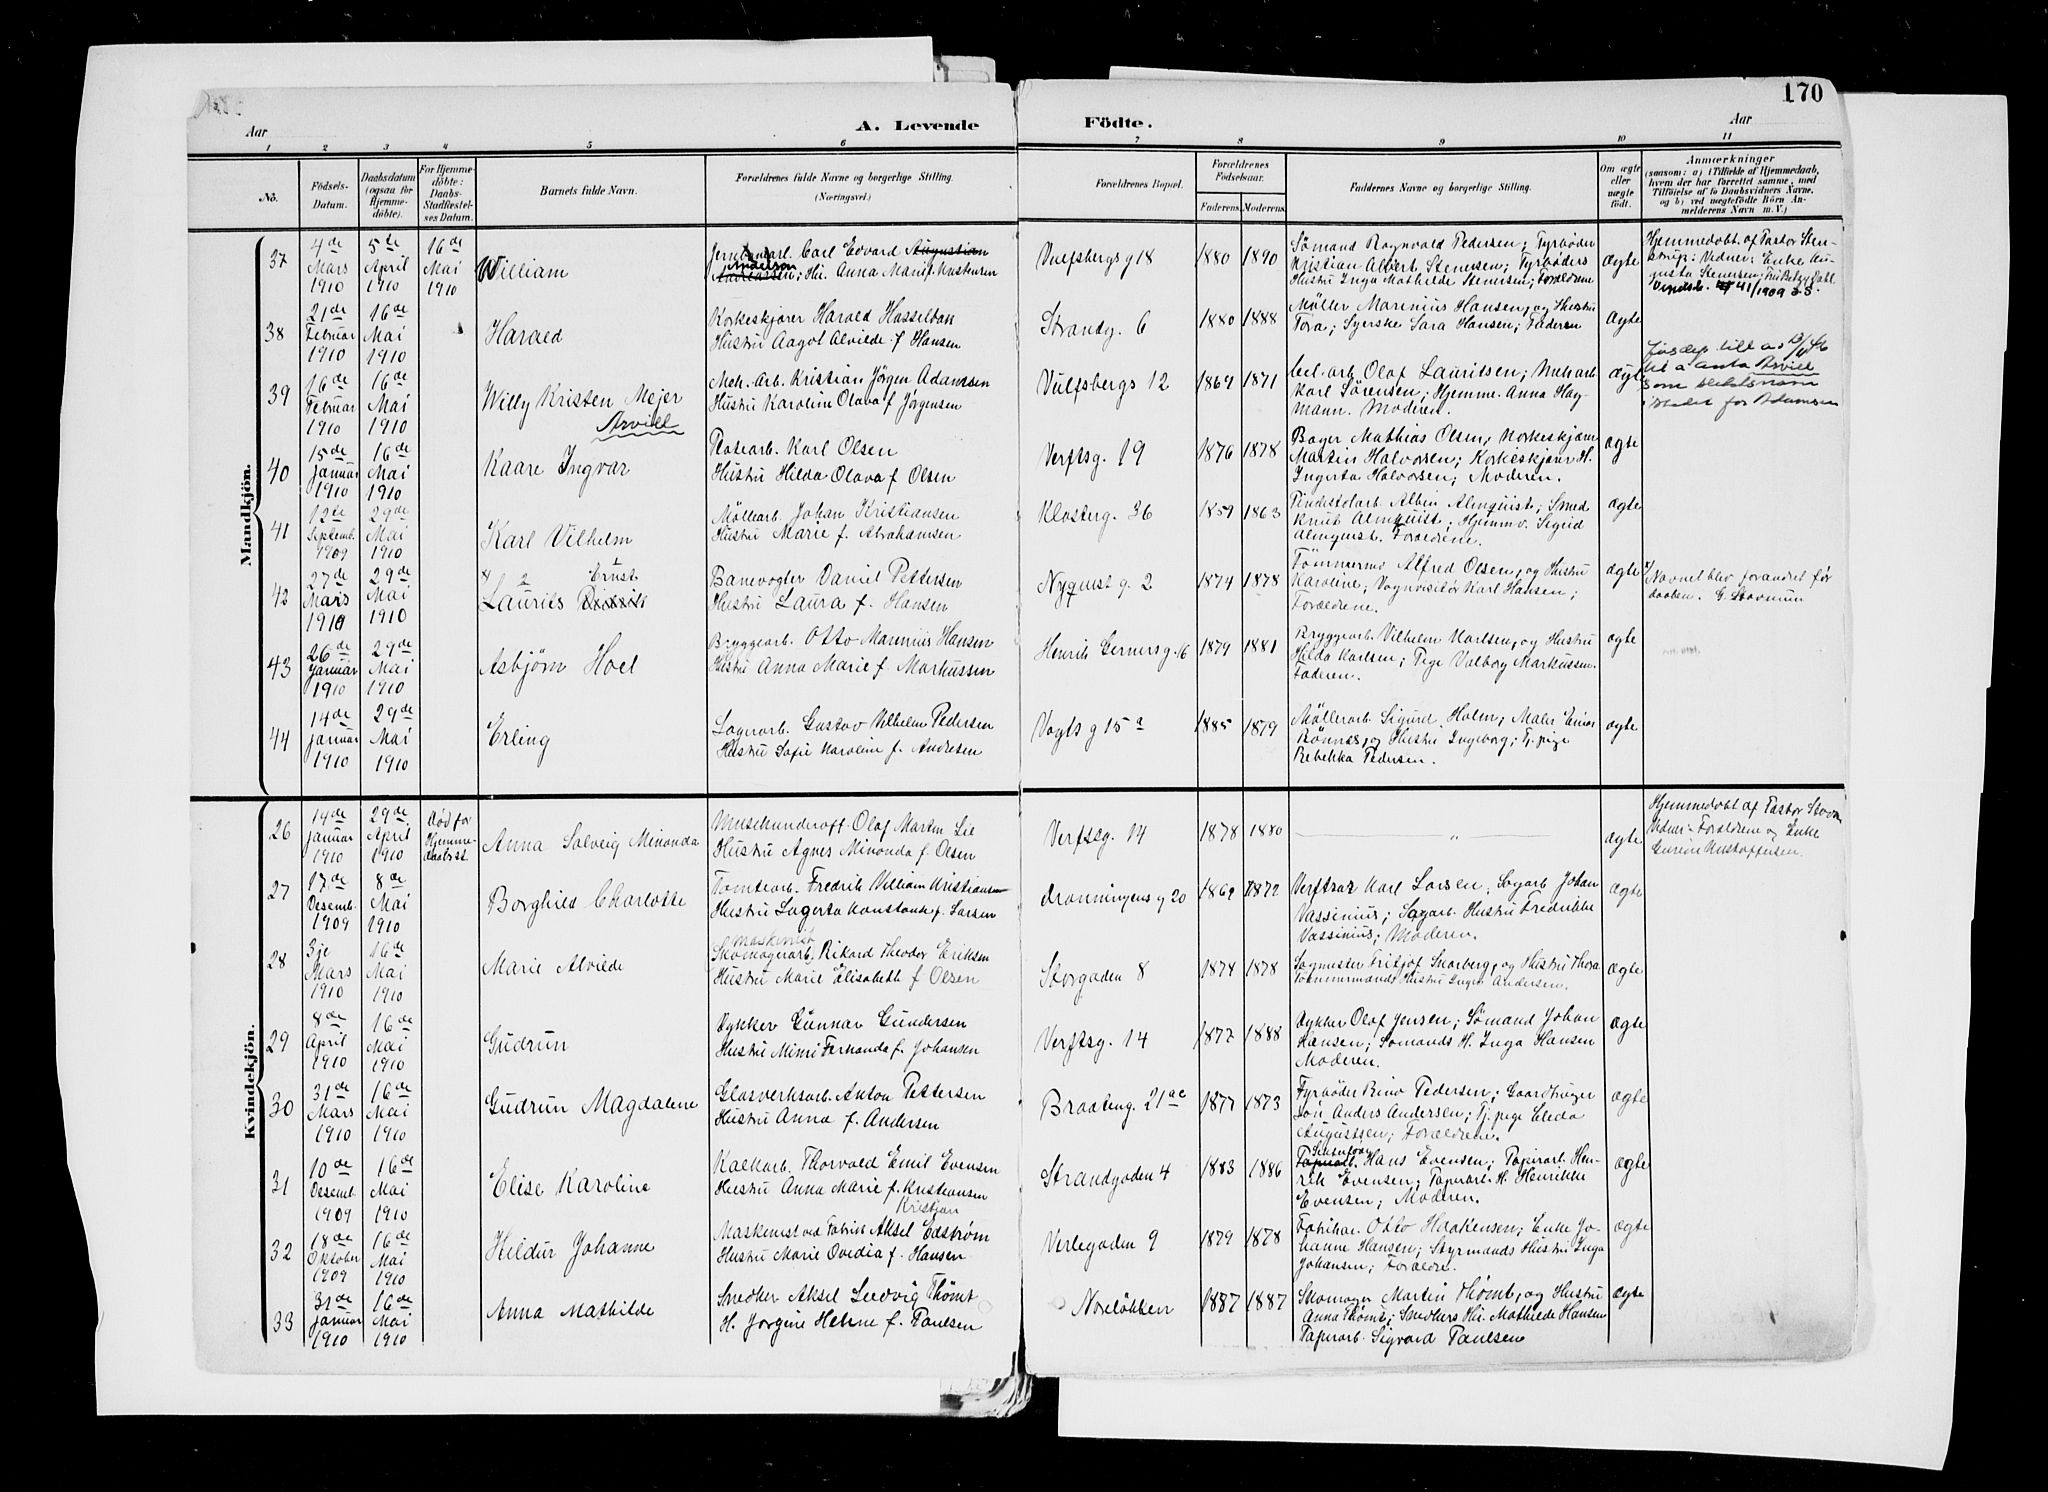 170
Aar
A. Levende
Födte.
Aar
1 2 3 4 5 6 7 8 9 10 11
No.
Födsels-
Datum.
Daabsdatum
(ogsaa for
Hjemme-
döbte).
For Hjemme-
döbte:
Daabs-
Stadfæstel-
ses Datum.
Barnets fulde Navn.
Forældrenes fulde Navne og borgerlige Stilling.
(Næringsvei.)
Forældrenes Bopæl.
Forældrenes
Födselsaar.
Faderens.
Moderens.
Faddernes Navne og borgerlige Stilling.
Om ægte
eller
uægte
födt.
Anmærkninger
(saasom: a) i Tilfælde af Hjemmedaab,
hvem der har forrettet samme, med
Tilföielse af to Daabsvidners Navne,
og b) ved uægtefödte Börn An-
melderens Navn m. V.)
Mandkjön.
37
4de
Mars
1910
5te
April
1910
16de
Mai
1910
William
Carl Edvard Augustian
Hu. Anna Marie f.
Vulfsbergs g 18
1880 1890
Sömand Ragnvald Pedersen; Fyrböder
Kristian Albert Stenersen; Fyrböders
Hustru Inga Mathilde Stenersen; Forældrene
ægte
Hjemmedöbt af Pastor Sten-
strup: Vidner: Enke Au-
gusta Stenersen;
41/1909
38
21de
Februar
1910
16de
Mai
1910
Harald
Korkeskjærer Harald Hasselbak
Hustru Aagot Alvilde f Hansen
Strandg. 6
1880 1888
Möller Marinius Hansen, og Hustru
Tora; Syerske Sara Hansen; Faderen
ægte
39
16de
Februar
1910
16de
Mai
1910
Willy Kristen Mejer
Arvill
Meh. Arb. Kristian Jörgen Adamsen
Hustru Karoline Olava f Jörgensen
Vulfsbergs 12
1869 1871
Cel. arb. Olaf Lauritsen; Meh arb
Karl Sörensen; Hjemme. Anna Hag-
mann. Moderen.
ægte
til a anta Arvill
som slektsnavn
istedet for Adamsen
40
15de
Januar
1910
16de
Mai
1910
Kaare Ingvar
Karl Olsen
Hustru Hilda Olava f Olsen
Verftsg. 19
1876 1878
Bager Mathias Olsen; Korkeskjærer
Martin Halvorsen; Korkeskjærer H.
Ingerta Halvorsen; Moderen.
ægte
41
12te
Septemb.
1909
29de
Mai
1910
Karl Vilhelm
Möllearb. Johan Kristiansen
Hustru Marie f. Abrahamsen
Klosterg. 36
1859 1863
Albin Almquist; Smed
Knut Almquist; Hjemmev. Sigrid
Almquist. Forældrene.
ægte
42
27de
Mars
1910
29de
Mai
1910
Ernst
Laurits
Banevogter Daniel Pettersen
Hustru Laura f. Hansen
Nyquist g. 2
1874 1878
Tömmermd Alfred Olsen, og Hustru
Karoline; Vognvisitör Karl Hansen;
Forældrene.
ægte
Navnet blev forandret før
daaben. G. Stovrum
43
26de
Januar
1910
29de
Mai
1910
Asbjørn Hoel
Bryggearb. Otto Marinius Hansen
Hustru Anna Marie f. Markussen
Henrik Gerners g. 16
1879 1881
Bryggearb. Vilhelm Karlsen, og Hustru
Hilda Karlsen; Pige Valborg Markussen.
Faderen.
ægte
44
14de
Januar
1910
29de
Mai
1910
Erling
Lagerarb. Gustav Vilhelm Pedersen
Hustru Sofie Karoline f. Andersen
Vogts g 15 a
1885 1879
Möllerarb. Sigurd Holm; Maler Einar
Rönnes, og Hustru Ingeborg; Tj. pige
Rebekka Pedersen.
ægte
Kvindekjön.
26
14de
Januar
1910
29de
April
1910
Död før
Hjemme-
Anna Solveig Minonda
Olaf Martin Lie
Hustru Agnes Minonda f. Olsen
Verftsg. 14
1878 1880
"
ægte
Hjemmedöbt af Pastor Stovrum
Vidner: Forældrene og Enke
Gurine Kristoffersen.
27
17de
Desemb.
1909
8de
Mai
1910
Borghild Charlotte
Tomtearb. Fredrik Villiam Kristiansen
Hustru Lagerta Konstanse f. Larsen
Dronningens g 20
1869 1872
Karl Larsen; Sagarb. Johan
Vassinius; Sagarb. Hustru Fredrikke
Vassinius; Moderen.
ægte
28
3je
Mars
1910
16de
Mai
1910
Marie Alvilde
Maskinist
Skomagerarb. Rikard Theodor Eriksen
Hustru Marie Elisabeth f Olsen
Storgaden 8
1874 1878
Sagmester Fritjof Skarberg, og Hustru Thora
Tömmermands Hustru Inger Andersen.
ægte
29
8de
April
1910
16de
Mai
1910
Gudrun
Dykker Gunnar Gundersen
Hustru Mimi Fernanda f. Johansen
Verftsg. 14
1877 1888
Dykker Olaf Jensen; Sömand Johan
Hansen; Sömands H. Inga Hansen
Moderen.
ægte
30
31de
Mars
1910
16de
Mai
1910
Gudrun Magdalene
Glasverksarb. Anton Pettersen
Hustru Anna f. Andersen
Braateng. 21 ac
1877 1873
Fyrböder Pedersen; Gaardbruger
sön Anders Andersen; Tj. pige
Augustsen; Forældrene.
ægte
31
10de
Desemb.
1909
16de
Mai
1910
Elise Karoline
Kalkarb. Thorvald Emil Evensen
Hustru Anna Marie f. Kristiansen
Strandgaden 4
1883 1886
Hans Evensen; Papirarb. Hen-
rik Evensen; Papirarb. H. Henrikke
Evensen; Moderen.
ægte
32
18de
Oktober
1909
16de
Mai
1910
Hildur Johanne
Kristian
Maskinist ved Fabrik Aksel Edström
Hustru Marie Ovedia f. Hansen
Verlegaden 9
1879 1878
Fabrikar. Otto Haakensen; Enke Jo-
hanne Hansen; Styrmands Hustru Inga
Johansen; Forældre.
ægte
33
31de
Januar
1910
16de
Mai
1910
Anna Mathilde
Snedker Aksel Ludvig Thömt
H. Jörgine Helene f. Paulsen
Noreløkken
1887 1887
Skomager Martin Thömt, og Hustru
Anna Thömt; Snedkers Hu. Mathilde Hansen
Papirarb. Sigvard Paulsen
ægte